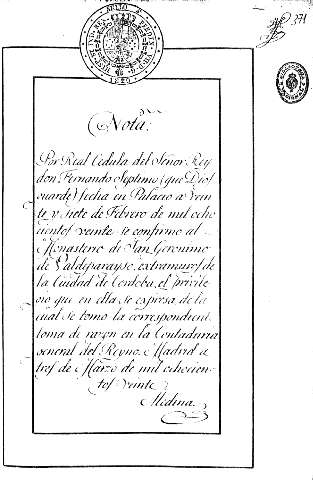 371
Nota.
Por Real Cedula del Señor Rey
don Fernando Septimo (que Dios
guarde) fecha en Palacio a vein
te y siete de Febrero de mil ocho
cientos veinte se confirmo al
Monasterio de San Geronimo
de Valdeparayso, extramuros de
la Ciudad de Cordoba, el privile
gio que en ella se expresa de la
cual se tomo la correspondient.
toma de razon en la Contaduria
general del Reyno. Madrid a
tres de Marzo de mil ochocien
tos veinte
Medina.